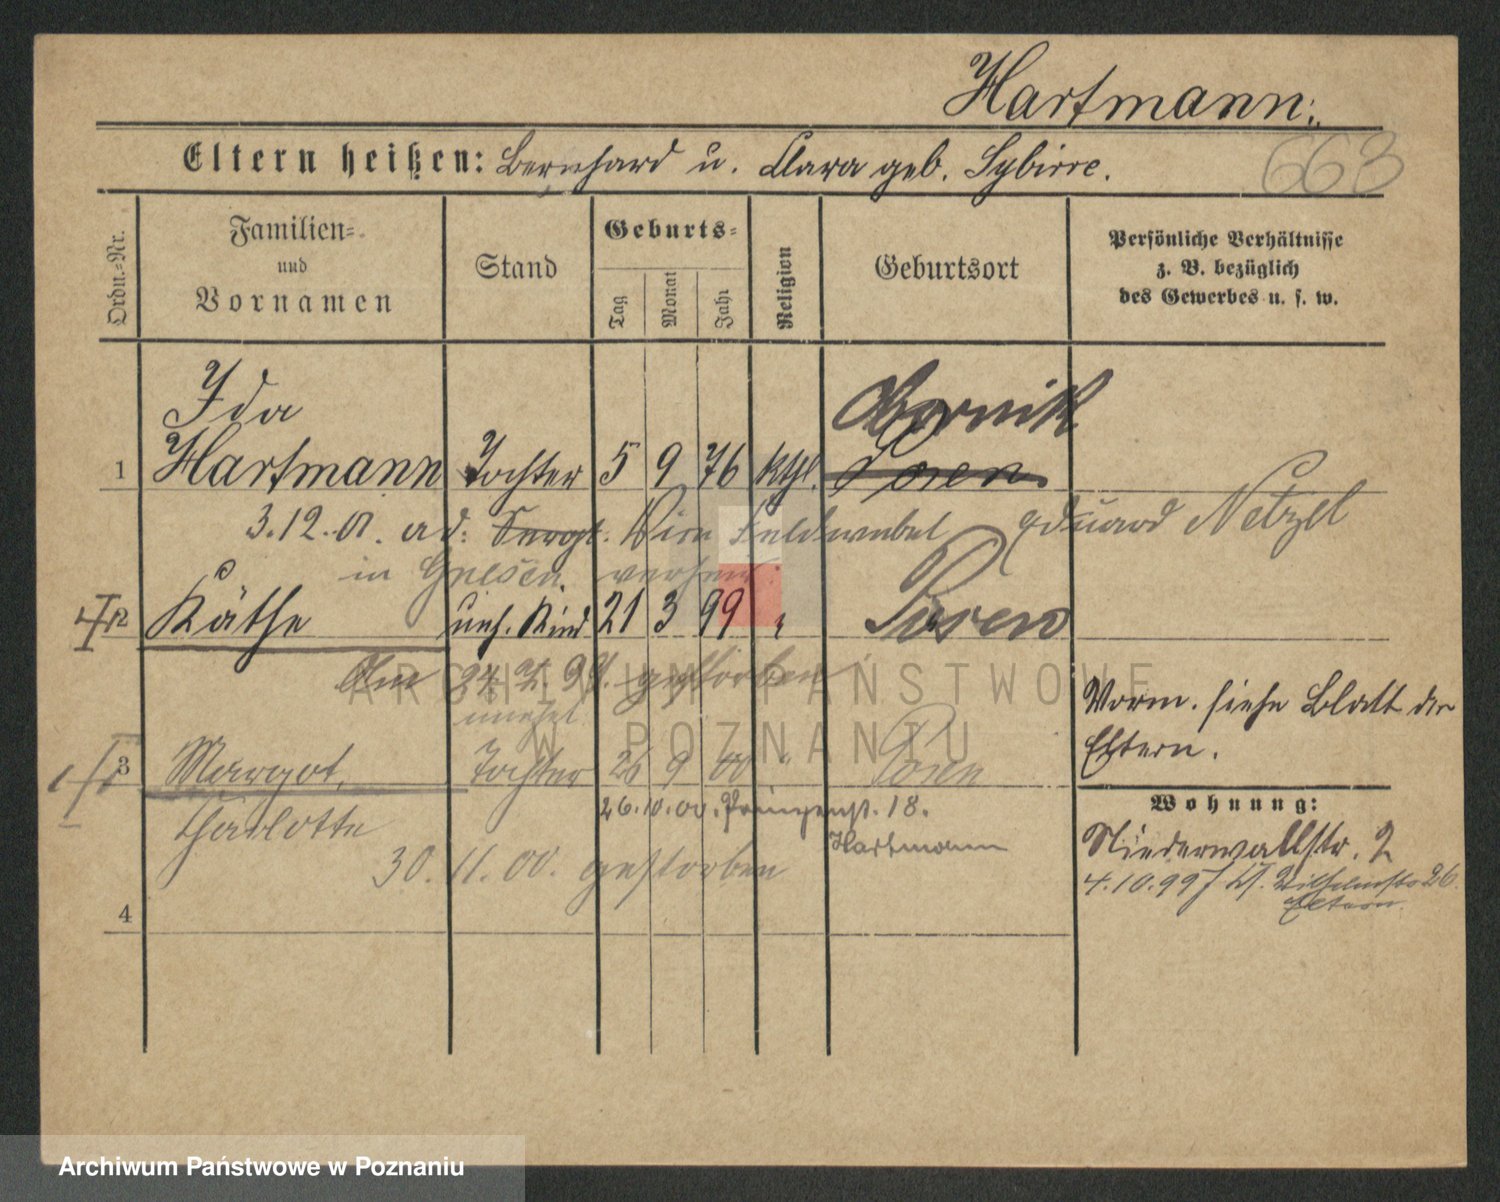 Hartmann.
663
Eltern heißen: Bernhard u. Clara geb. Sybirre.
Ordn.-Nr.
Familien-
und
Vornamen
Stand
Geburts-
Tag
Monat
Jahr
Religion
Geburtsort
Persönliche Verhältnisse
z. B. bezüglich
des Gewerbes u. s. w.
Ida
Obornik
1 Hartmann Tochter 5 9 76 kth. Posen
3.12.01. ad: Sergt. Feldwebel Eduard Netzel
in Gnesen. verheir.
2 Käthe unh. Kind 21 3 99 " Posen
Am 24. 99. gestorben
unehel.
3 Margot Tochter 26 9 00 " Posen
26.10.00. 18.
Charlotte
Hartmann
30. 11. 00. gestorben
4
Vorm. siehe Blatt der
Eltern.
Wohnung:
Niederwallstr. 2
4.10.99 Wilhelmstr 26.
Eltern
ARCHIWUM PAŃSTWOWE
W POZNANIU
Archiwum Państwowe w Poznaniu